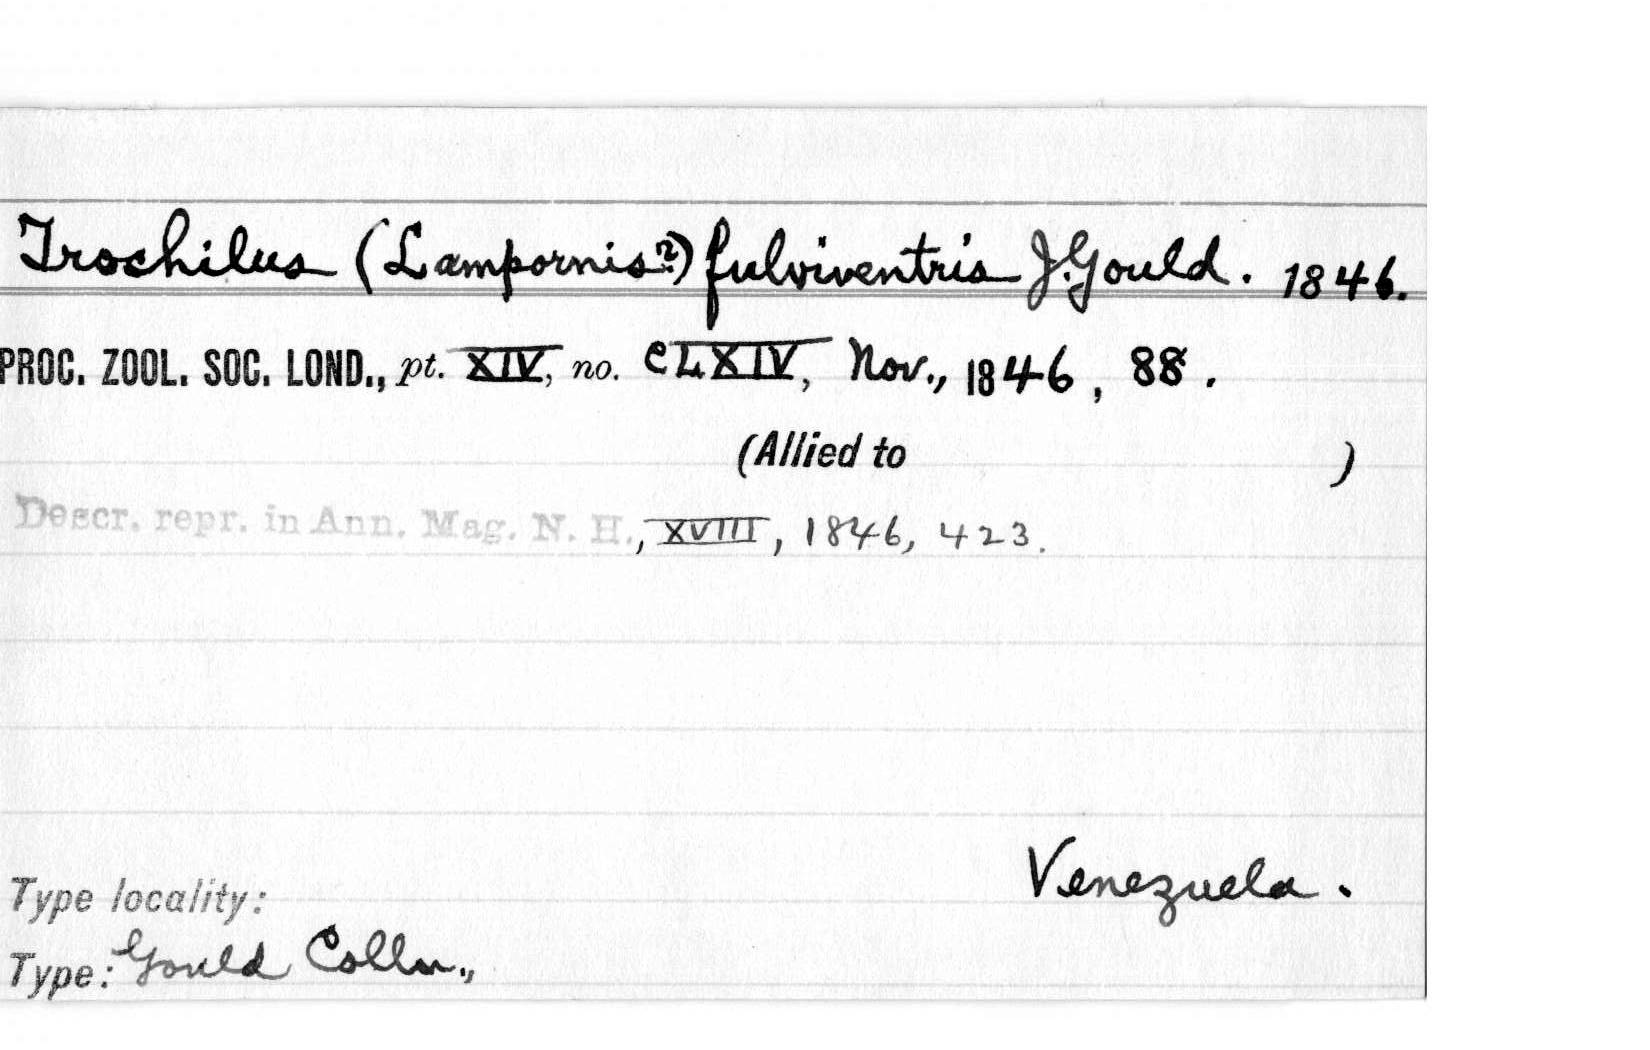 Trochilus (Lampornis?) fulviventris J. Gould. 1846.
PROC. ZOOL. SOC. LOND., pt. XIV, no. CLXIV, Nov., 1846, 88.
(Allied to )
Descr. repr. in Ann. Mag. N. H., XVIII, 1846, 423.
Venezuela.
Type locality:
Type: Gould Colln.,